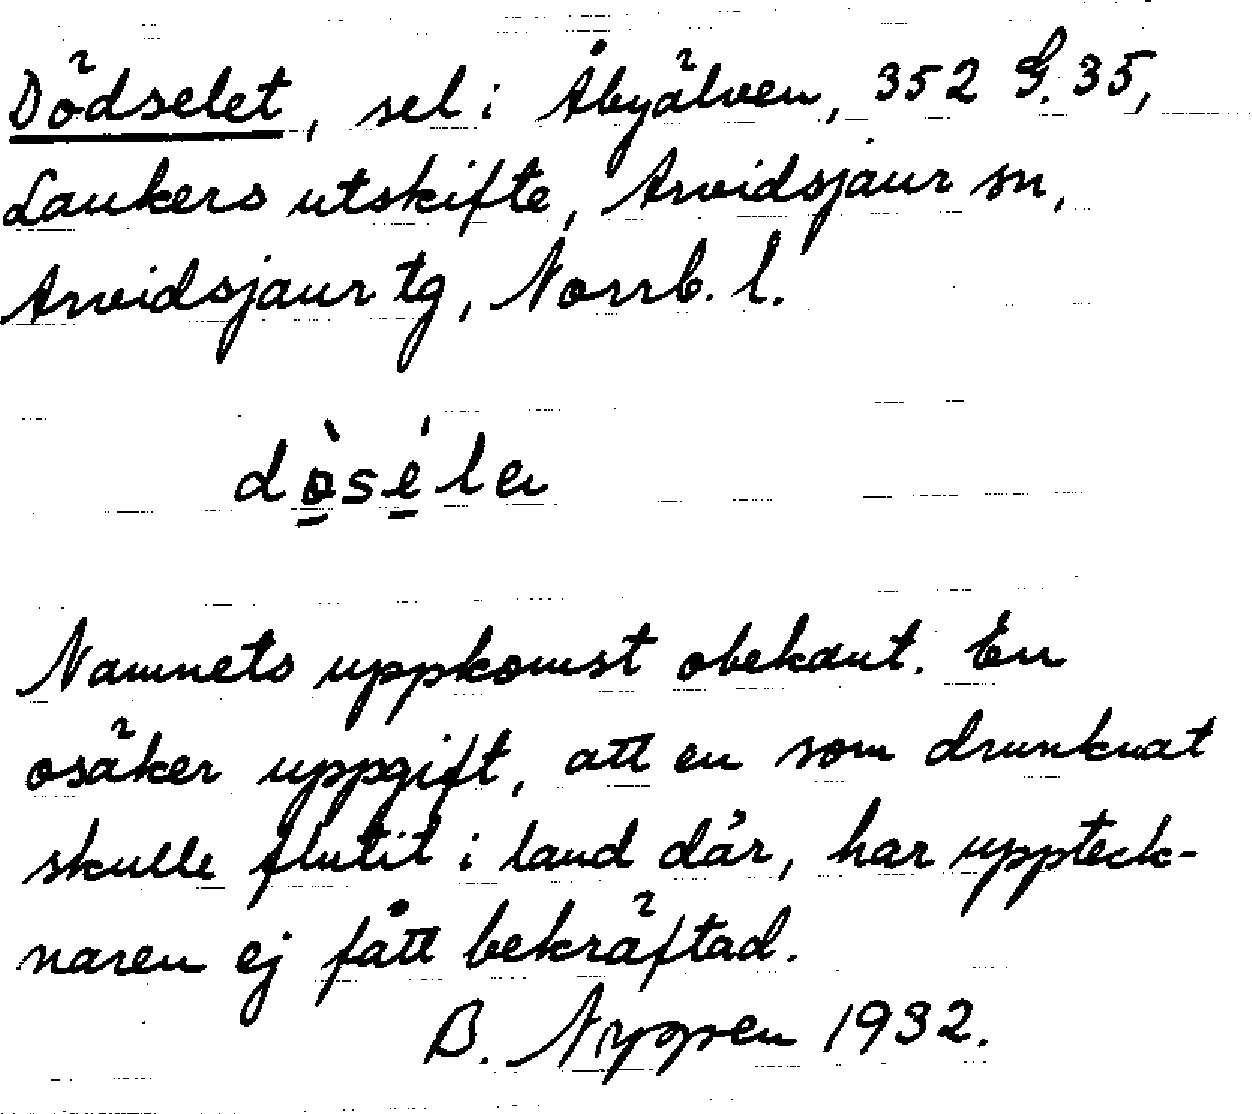 Dödselet, sel i Åbyälven, 352 G. 35,
Laukers utskifte, Arvidsjaur sn,
Arvidsjaur tg, Norrb. l.
dò̱sé̱la
Namnets uppkomst obekant. En
osäker uppgift, att en som drunknat
skulle flutit i land där, har uppteck-
naren ej fått bekräftad.
B. Nygren 1932.